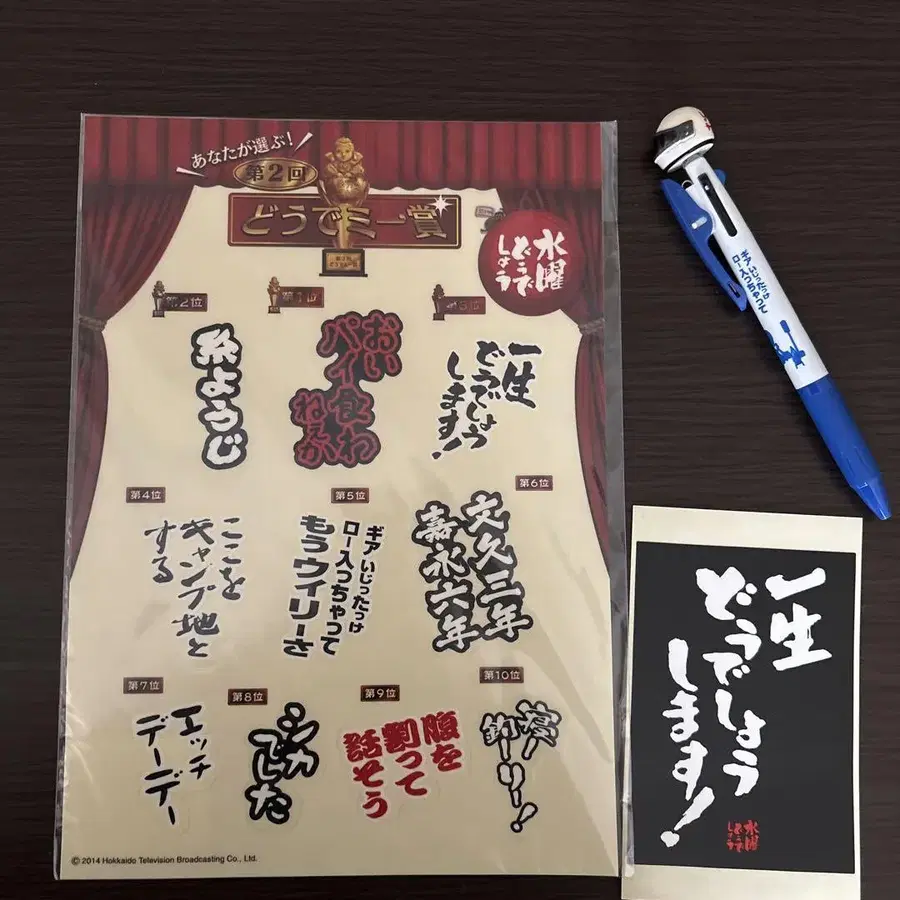 あなたが選ぶ!
第2回
どうでミー賞
水曜
どうで
しょう
第2位
糸ようじ
第1位
おい
パイ食わ
ねぇか
第3位
一生
どうでしょう
します!
第4位
ここを
キャンプ地と
する
第5位
ギアいじったっけ
ロー入っちゃって
もうウィリーさ
第6位
文久三年
嘉永六年
第7位
エッチ
デーデー
第8位
シカ
でした
第9位
腹を
割って
話そう
第10位
寝ー
釣ーリー!
© 2014 Hokkaido Television Broadcasting Co., Ltd.
ギアいじったっけ
ロー入っちゃって
一生
どうでしょう
します!
水曜
どうで
しょう